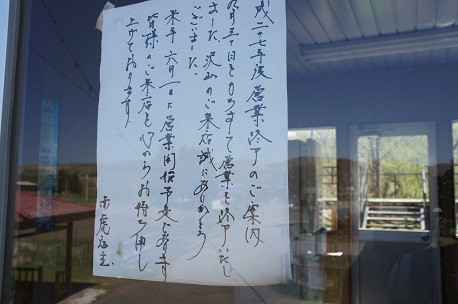 成二十七年度営業終了のご案内
九月三十日をもちまして営業を終了いたし
ました、沢山のご来店誠にありがとう
ございました。
来年 六月一日に営業開始予定で有ります
皆様のご来店を心からお待ち申し
上げております。
店主